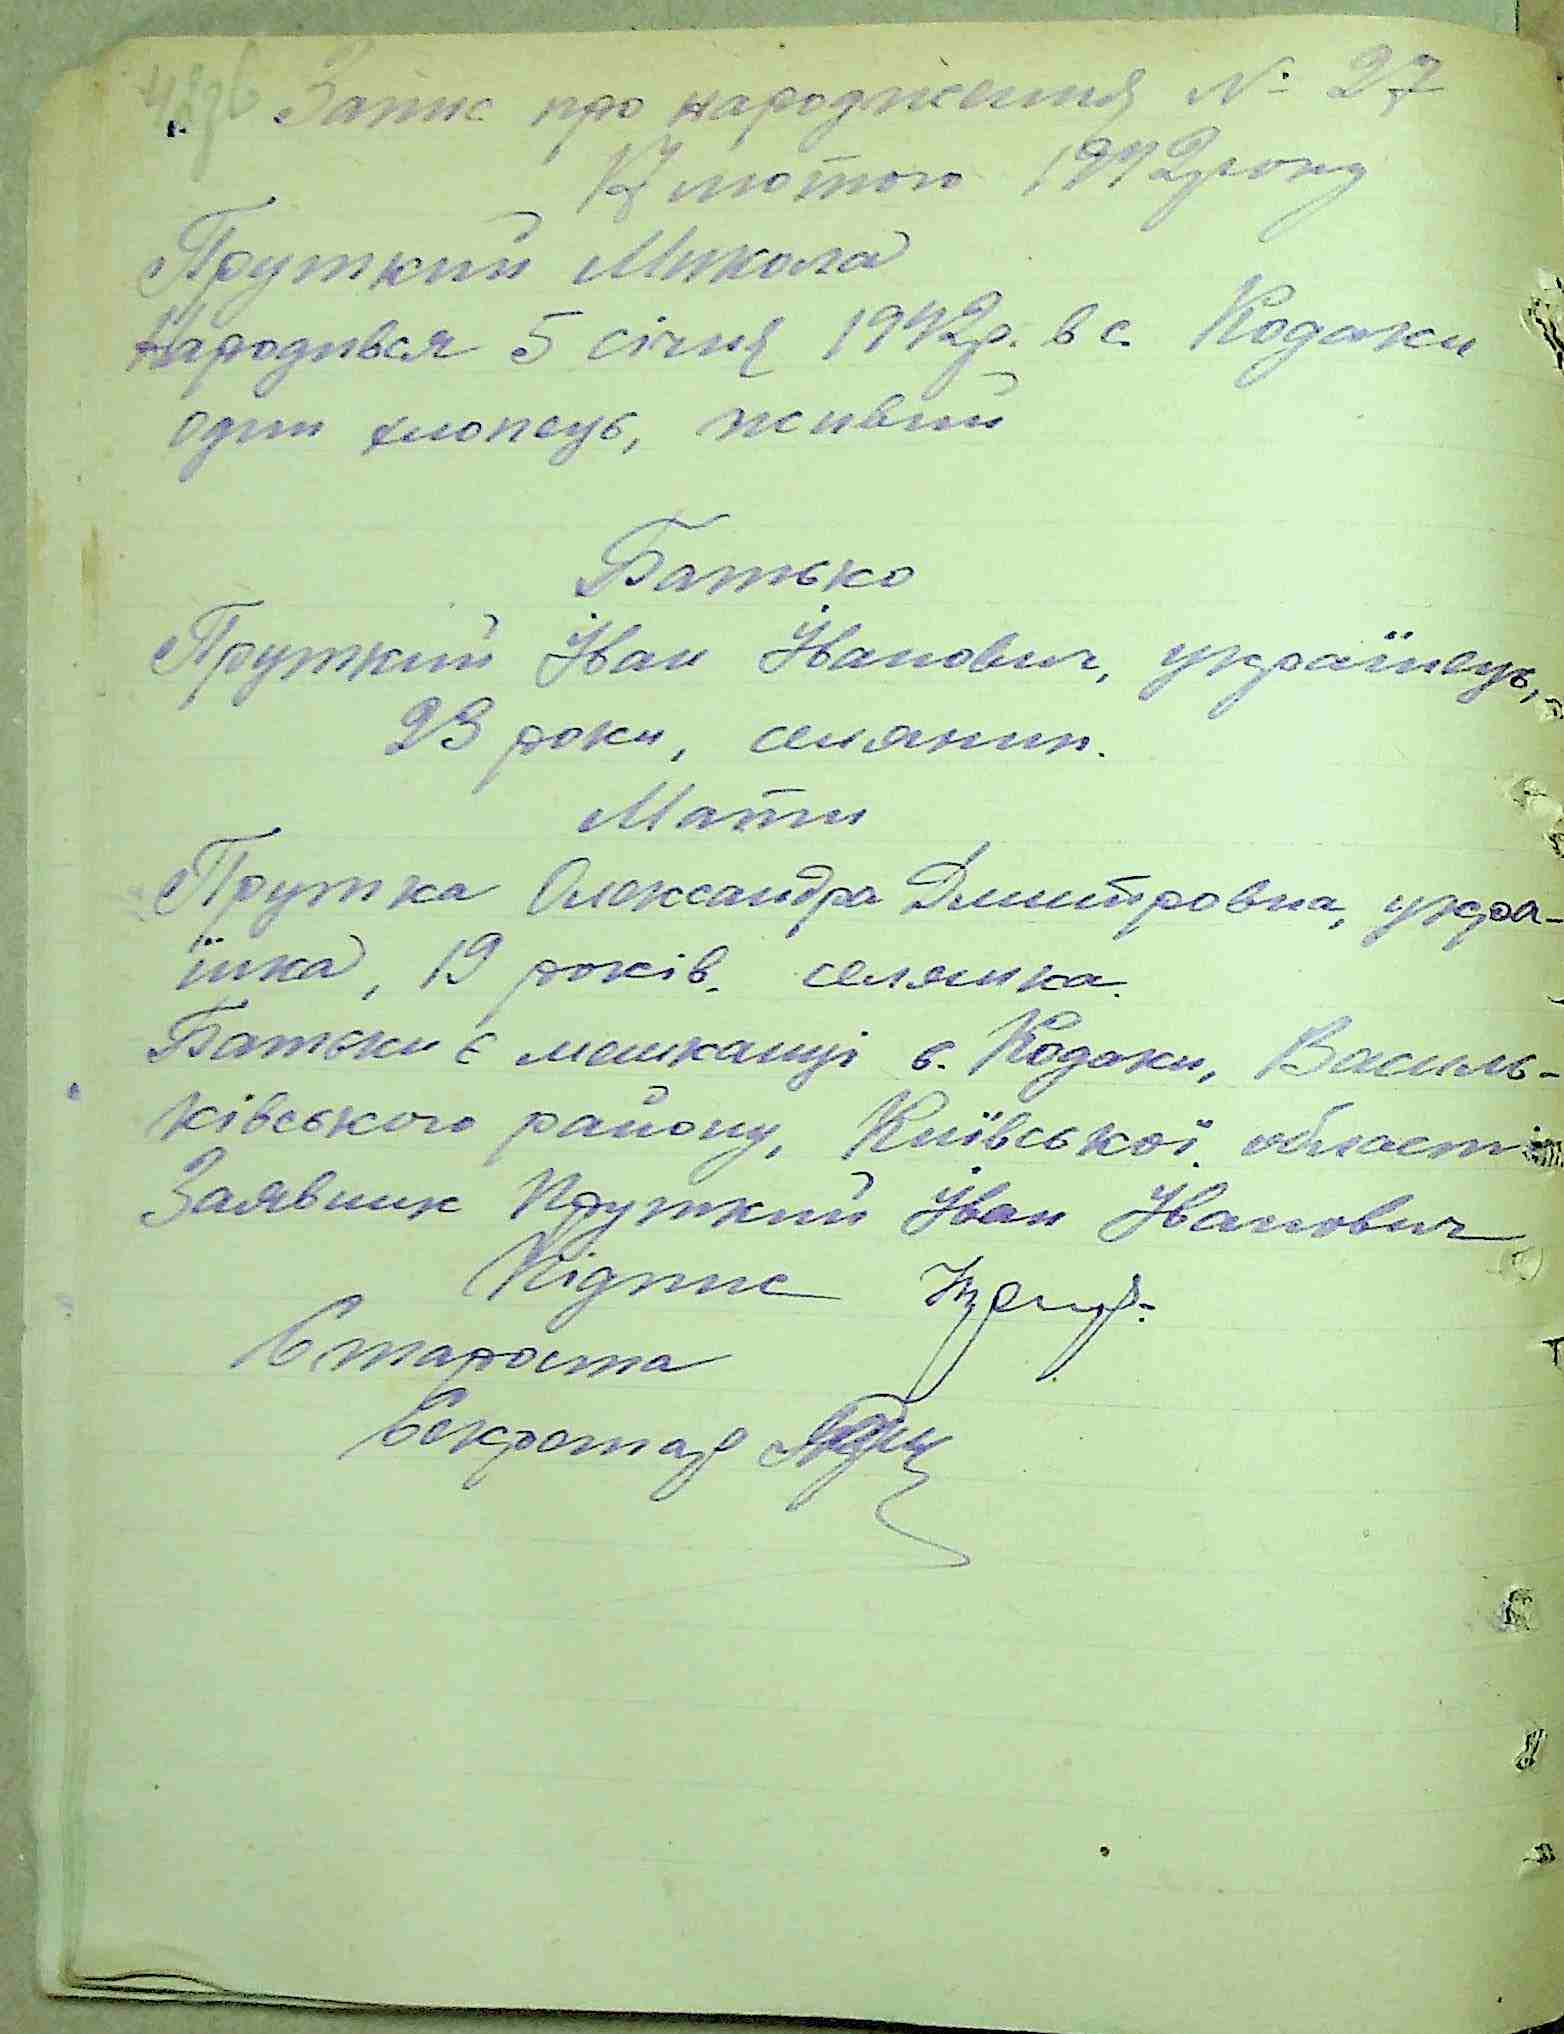 Запис про народження № 27
17 лютого 1942 року
Пруткий Микола
Народився 5 січня 1942 р. в с. Кодаки
один хлопець, живий
Батько
Пруткий Іван Іванович, українець,
23 роки, селянин.
Мати
Прутка Олександра Дмитровна, укра-
їнка, 19 років, селянка.
Батьки є мешканці с. Кодаки, Василь-
ківського району, Київської області
Заявник Пруткий Іван Іванович
Підпис
Староста
Секретар